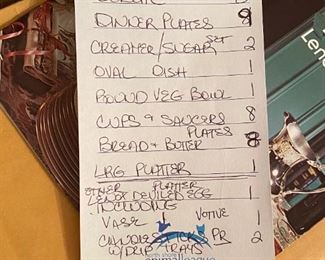 DINNER PLATES 9
CREAMER/SUGAR SET 2
OVAL DISH 1
ROUND VEG BOWL 1
CUPS & SAUCERS 8
BREAD & BUTTER PLATES 8
LRG PLATTER 1
OTHER PLATTER
LENOX DEVILED EGG 1
INCLUDING
VASE VOTIVE 1
CANDLE STICKS PR 2
W/DRIP TRAYS
animalleague
Leno